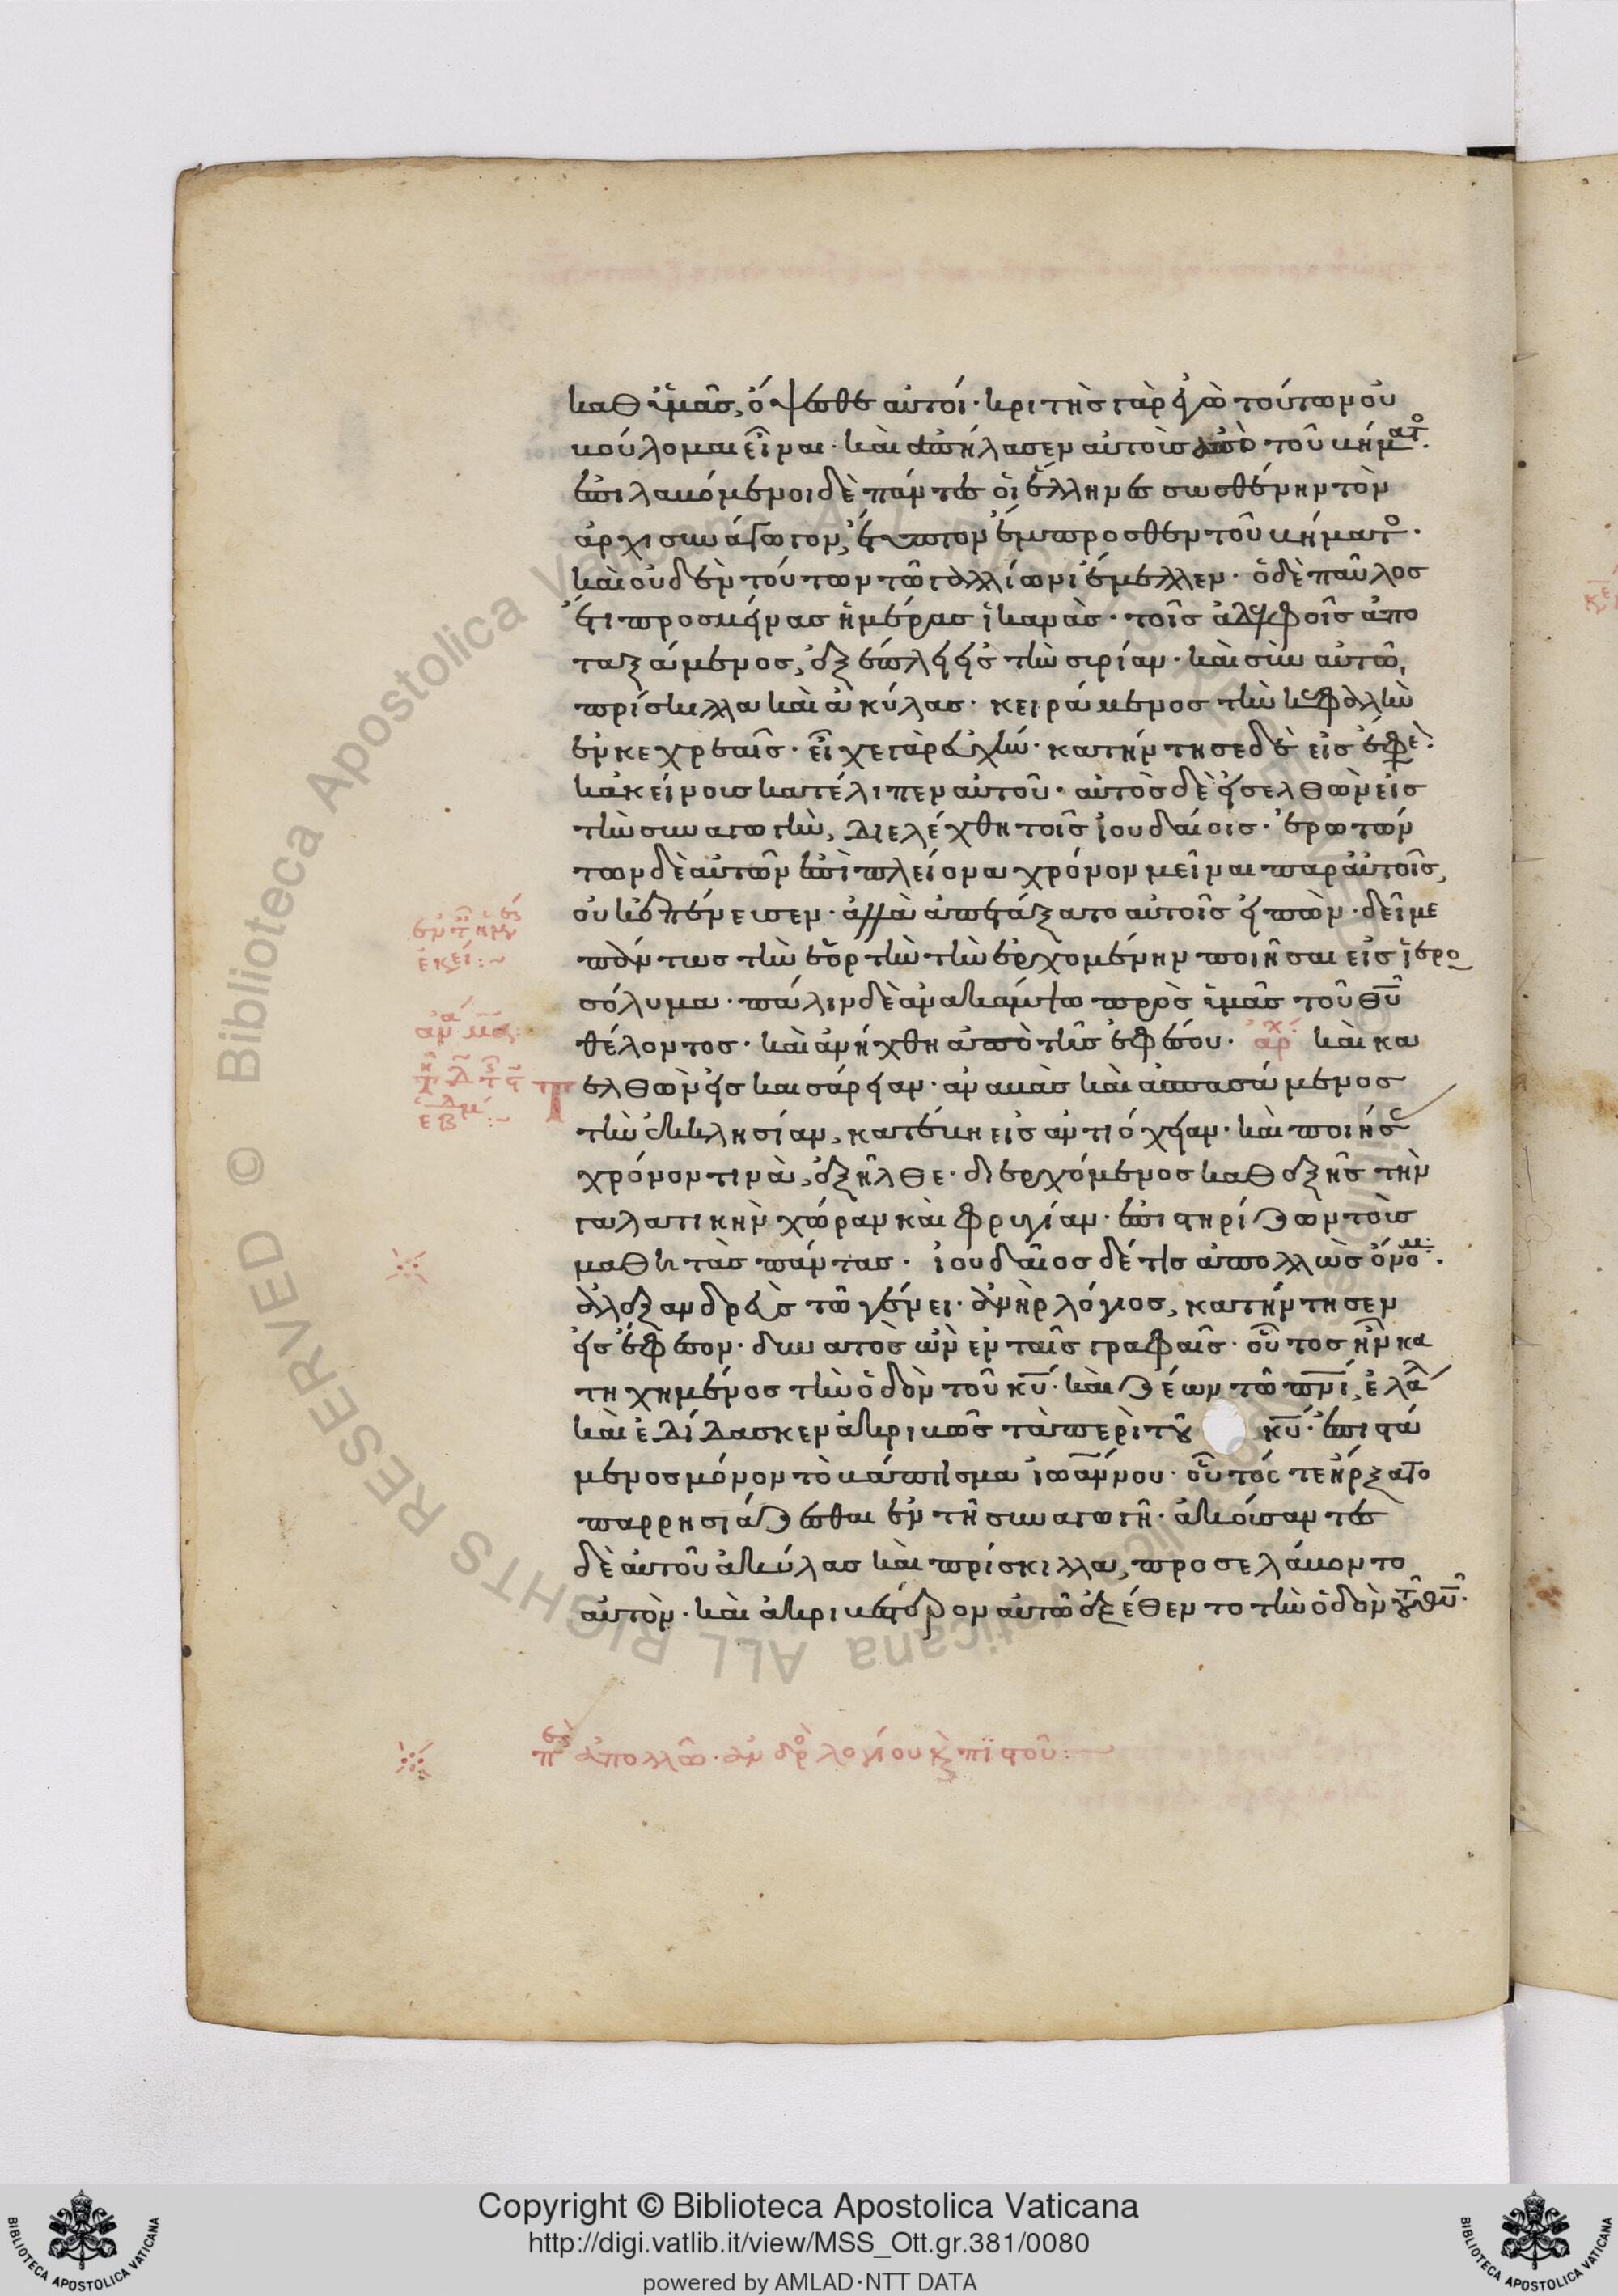 καθ ὑμᾶς, ὄψεσθε αὐτοί· κριτὴς γὰρ ἐγὼ τούτων οὐ
βούλομαι εἶναι· καὶ ἀπήλασεν αὐτοὺς ἀπὸ τοῦ βήματ.
ἐπιλαβόμενοι δὲ πάντες οἱ ἕλληνες σωσθένην τὸν
ἀρχισυνάγωγον, ἔτυπτον ἔμπροσθεν τοῦ βήματ·
καὶ οὐδὲν τούτων τῶ γαλλίωνι ἔμελλεν· ὁ δὲ παῦλος
ἔτι προσμείνας ἡμέρας ἱκανὰς· τοῖς ἀδελφοῖς ἀπο
ταξάμενος, ἐξέπλει εἰς τὴν συρίαν· καὶ σὺν αὐτῶ,
πρίσκιλλα καὶ ἀκύλας· κειράμενος τὴν κεφαλὴν
ἐν κεχρεαῖς· εἶχε γὰρ εὐχήν· κατήντησε δὲ εἰς ἔφε.
κἀκείνους κατέλιπεν αὐτοῦ· αὐτὸς δὲ εἰσελθὼν εἰς
τὴν συναγωγὴν, διελέχθη τοῖς ἰουδαίοις· ἐρωτών
των δὲ αὐτῶν ἐπὶ πλείονα χρόνον μεῖναι παρ αὐτοῖς,
οὐκ ἐπένευσεν· ἀλλὰ ἀπετάξατο αὐτοῖς εἰπὼν· δεῖ με
πάντως τὴν ἑορτὴν τὴν ἐρχομένην ποιῆσαι εἰς ἱερο
σόλυμα· πάλιν δὲ ἀνακάμψω πρὸς ὑμᾶς τοῦ θῦ
θέλοντος· καὶ ἀνήχθη ἀπὸ τῆς ἐφέσου· ἀρχ καὶ κα
τελθὼν εἰς καισάρειαν· ἀναβὰς καὶ ἀσπασάμενος
τὴν ἐκκλησίαν, κατέβη εἰς ἀντιόχειαν· καὶ ποιήσ
χρόνον τινὰ, ἐξῆλθε· διερχόμενος καθεξῆς τὴν
γαλατικὴν χώραν καὶ φρυγίαν· ἐπιστηρίζων τοὺς
μαθητὰς πάντας· ἰουδαῖος δέ τις ἀπολλὼς ὀνόμ.
ἀλεξανδρεὺς τῶ γένει· ἀνὴρ λόγιος, κατήντησεν
εἰς ἔφεσον· δυνατὸς ὢν ἐν ταῖς γραφαῖς· οὗτος ἦν κα
τηχημένος τὴν ὁδὸν τοῦ κῦ· καὶ ζέων τῶ πνι, ἐλά
καὶ ἐδίδασκεν ἀκριβῶς τὰ περὶ τοῦ κῦ· ἐπιστά
μενος μόνον τὸ βάπτισμα ἰωάννου· οὗτός τε ἤρξατο
παρρησιάζεσθαι ἐν τῆ συναγωγῆ· ἀκούσαντες
δὲ αὐτοῦ ἀκύλας καὶ πρίσκιλλα, προσελάβοντο
αὐτὸν· καὶ ἀκριβέστερον αὐτῶ ἐξέθεντο τὴν ὁδὸν τοῦ θῦ·
ἐκεῖ:~
περὶ ἀπολλῶ· ἀνδρὸς λογίου καὶ πιστοῦ:
Copyright © Biblioteca Apostolica Vaticana
http://digi.vatlib.it/view/MSS_Ott.gr.381/0080
powered by AMLAD·NTT DATA
BIBLIOTECA APOSTOLICA VATICANA
BIBLIOTECA APOSTOLICA VATICANA